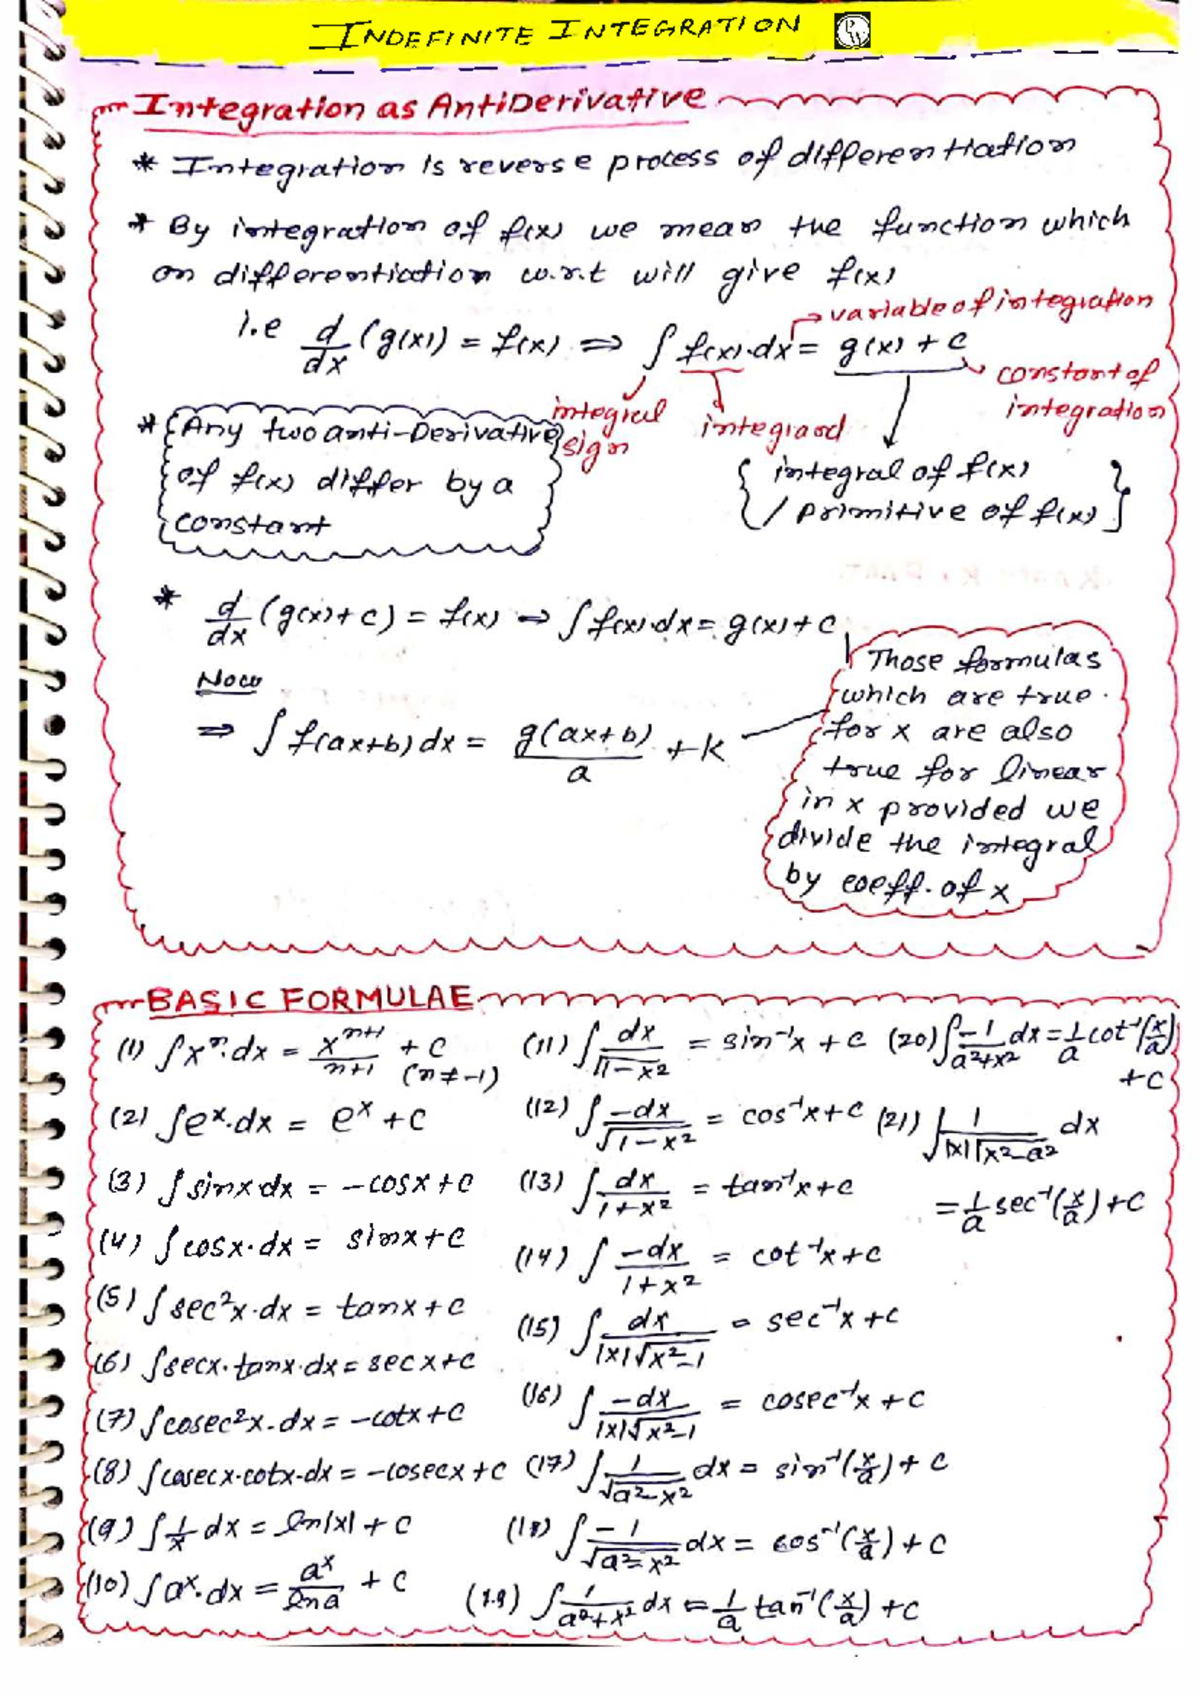 INDEFINITE INTEGRATION
Integration as AntiDerivative
* Integration is reverse process of differentiation
* By integration of f(x) we mean the function which
on differentiation w.r.t will give f(x)
i.e d/dx (g(x)) = f(x) ⇒ ∫ f(x)·dx = g(x) + c
→ variable of integration
constant of
integration
integral
sign
integrand
{ integral of f(x)
/ primitive of f(x) }
* Any two anti-Derivative
of f(x) differ by a
constant
* d/dx (g(x)+c) = f(x) ⇒ ∫ f(x)·dx = g(x)+c
Now
⇒ ∫ f(ax+b) dx = g(ax+b)/a + k
Those formulas
which are true
for x are also
true for linear
in x provided we
divide the integral
by coeff. of x
BASIC FORMULAE
(1) ∫xⁿ·dx = xⁿ⁺¹/n+1 + c (n≠-1)
(2) ∫eˣ·dx = eˣ + c
(3) ∫sinx·dx = -cosx + c
(4) ∫cosx·dx = sinx + c
(5) ∫sec²x·dx = tanx + c
(6) ∫secx·tanx·dx = secx + c
(7) ∫cosec²x·dx = -cotx + c
(8) ∫cosecx·cotx·dx = -cosecx + c
(9) ∫1/x dx = ln|x| + c
(10) ∫aˣ·dx = aˣ/lna + c
(11) ∫dx/√1-x² = sin⁻¹x + c
(12) ∫-dx/√1-x² = cos⁻¹x + c
(13) ∫dx/1+x² = tan⁻¹x + c
(14) ∫-dx/1+x² = cot⁻¹x + c
(15) ∫dx/|x|√x²-1 = sec⁻¹x + c
(16) ∫-dx/|x|√x²-1 = cosec⁻¹x + c
(17) ∫1/√a²-x² dx = sin⁻¹(x/a) + c
(18) ∫-1/√a²-x² dx = cos⁻¹(x/a) + c
(19) ∫1/a²+x² dx = 1/a tan⁻¹(x/a) + c
(20) ∫-1/a²+x² dx = 1/a cot⁻¹(x/a)
+c
(21) ∫1/|x|√x²-a² dx
= 1/a sec⁻¹(x/a) + c